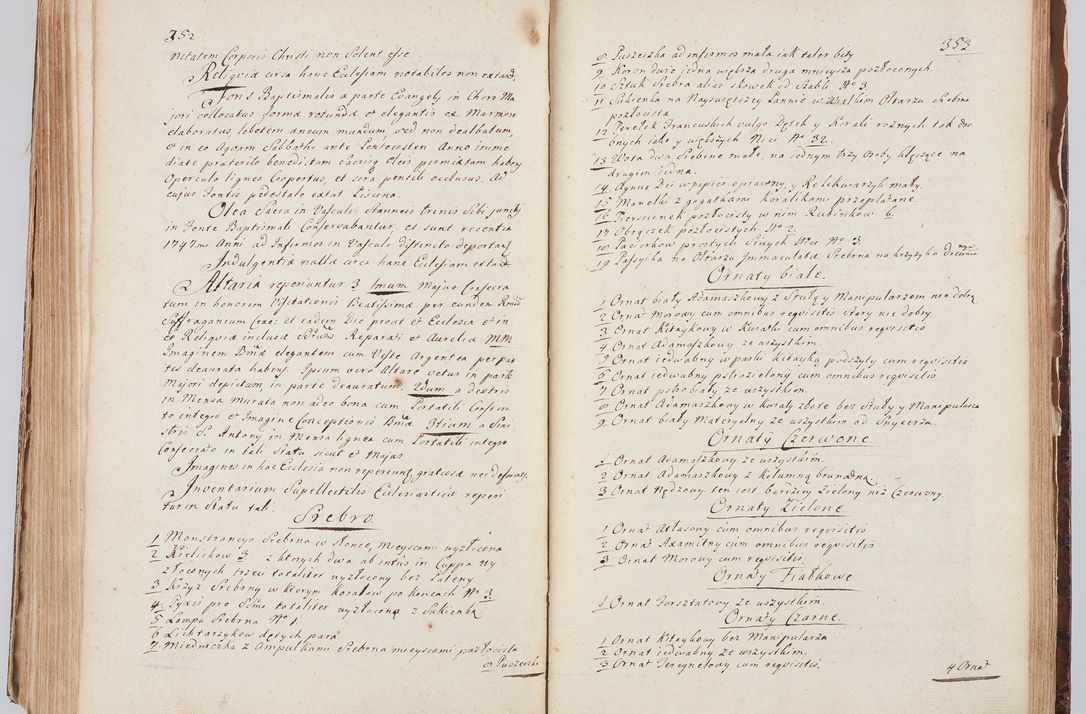 352
nitatem Corporis Christi non Solent esse
Reliquiæ circa hanc Ecclesiam notabiles non extant.
Fons Baptismalis a parte Evangely in Choro Ma
jori collocatus forma rotunda et elegantis ex Marmore
elaboratus, lebetem aneum mundum, sed non dealbatum,
et in eo Aquam Sabbatho ante Pentecosten Anno imme
diate præterito benedictam Sacrisq Oleis permixtam habens
Operculo ligneo Coopertus, et sera pensili occlusus. Ad
cujus Fontis pedestale extat Piscina.
Olea Sacra in Vasculis Stanneis trinis Sibi junctis
in Fonte Baptismali Conservabantur, et sunt recentia
1747mi Anni ad Infirmos in Vasculo distincto deportant
Indulgentiæ nullæ circa hanc Ecclesiam extant
Altaria reperiuntur 3 Imum Majus Consecra
tum in honorem Visitationis Beatissimæ per eundem Rmum
Suffraganeum Crac: et eadem Die prout et Ecclesia et in
eo Reliquiæ inclusæ Reparati et Aureliæ MM
Imaginem Bmæ elegantem cum Veste Argentea per par
tes deaurata habens. Ipsum vero Altare vetus in parte
Majori depictum in parte deauratum. 2dum a dextris
in Mensa murata non adeo bona cum Portatili Consecra
to integro et Imagine Conceptionis Bmæ 3tium a Sini
stris S. Antony in Mensa lignea cum Portatili integro
Consecrato in tali Statu sicut et Majus
Imagines in hac Ecclesia non reperiunt, gratiosæ nec
Inventarium Supellectilis Ecclesiasticæ reperi
tur in Statu tali.
Srebro.
1 Monstrancya Srebrna w Słonce, mieyscami wyzłocona
2 Kielichow 3 z ktorych dwa ab intus in Cuppa wy
złoconych trzeci totaliter wyzłocony bez Pateny
3 Krzyż Srebrny w ktorym koralow po koncach No 3
4 Pyxis pro totaliter wyzłocona z Sukienką
5 Lampa Srebrna No 1.
6 Lichtarzykow dętych para
7 Miedniczka z Ampułkami Srebrna mieyscami pozłocista
8 Puszeczka
353
8 Puszeczka ad infirmos mała iak talar bity
9 Koron dwie jedna większa druga mnieysza pozłoconych
10 Sztuk Srebra alias Skowek od Szabli No 3
11 Sukienka na Nayswiętszey Pannie w Wielkim Ołtarzu Srebrna
pozłocista
12 Perełek Francuskich vulgo Dętych y Korali rożnych tak dro
bnych iako y większych Nici No 32.
13 Wota dwa Srebrne małe, na jednym trzy Osoby klęczące na
drugim jedna.
14 Agnus Dei w papier oprawny, y Relikwiarzyk mały.
15 Manelki z gagatkami koralikami przeplatane.
16 Pierscionek pozłocisty w nim Rubinkow 6.
17 Obrączek pozłocistych No 2
18 Paciorkow prostych Sinych Nici No 3
19 Passyika na Ołtarzu Immaculatæ Srebrna na krzyżyku drewnia
Ornaty białe.
1 Ornat biały Adamaszkowy z Stułą y Manipularzem nie dobrą
2 Ornat Morowy cum omnibus requisitis stary nie dobry
3 Ornat Kitaykowy w Kwiatki cum omnibus requisitis
4 Ornat Adamaszkowy ze wszystkim
5 Ornat jedwabny w paski kitayką podszyty cum requisitis
6 Ornat jedwabny pstrozielony cum omnibus requisitis
7 Ornat pstrobiały ze wszystkim.
8 Ornat Adamaszkowy w kwiaty złote bez Stuły y Manipularza
9 Ornat biały Materyalny ze wszystkim od Snycerza.
Ornaty Czerwone.
1 Ornat Adamaszkowy ze wszystkim.
2 Ornat Adamaszkowy z kolumną brunatną
3 Ornat Nędzowy. ten iest bardziey Zielony niż Czerwony.
Ornaty Zielone.
1 Ornat Atłasowy cum omnibus requisitis
2 Ornat Axamitny cum omnibus requisitis
3 Ornat Morowy cum requisitis.
Ornaty Fiałkowe
1 Ornat Forsztatowy ze wszystkim.
Ornaty Czarne.
1 Ornat Kitaykowy bez Manipularza
2 Ornat jedwabny ze wszystkim.
3 Ornat Terynelowy cum requisitis.
4 Ornat